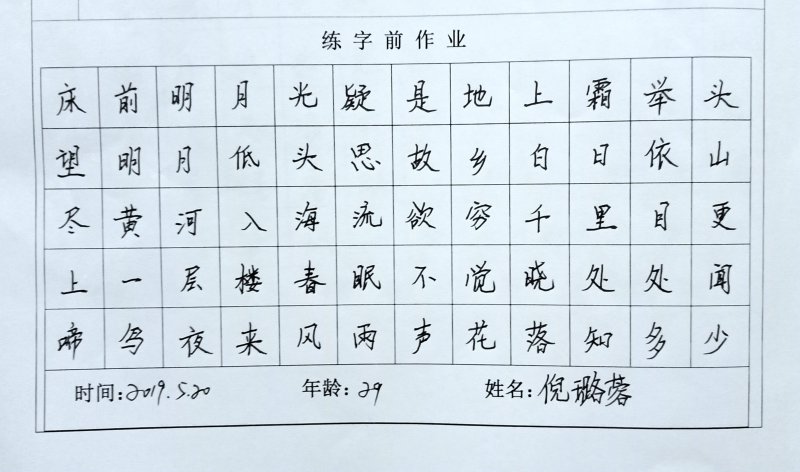 练字前作业
床前明月光疑是地上霜举头
望明月低头思故乡白日依山
尽黄河入海流欲穷千里目更
上一层楼春眠不觉晓处处闻
啼鸟夜来风雨声花落知多少
时间:2019.5.20 年龄:29 姓名:倪璐蓉